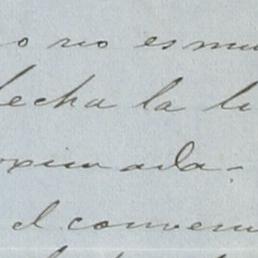 o no es mu
fecha la li
oximada-
el conven